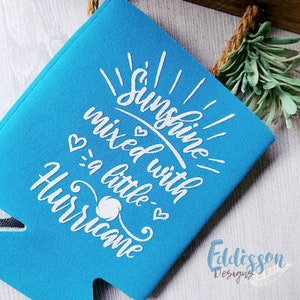 Sunshine
mixed with
a little
Hurricane
Eddisson
Designs